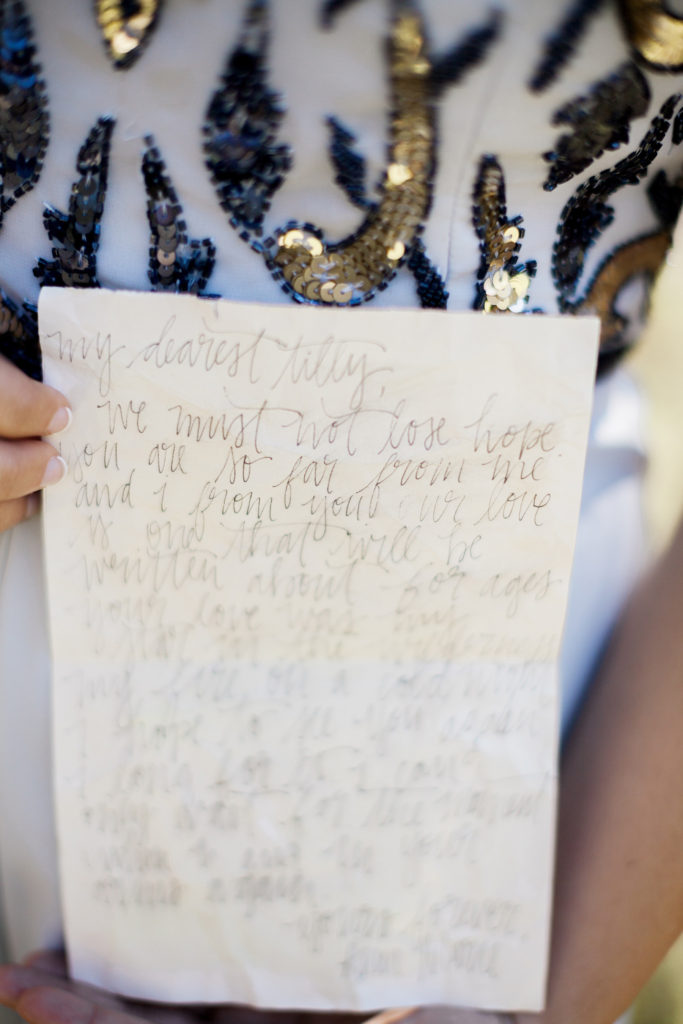 my dearest tilly,
we must not lose hope.
you are so far from me
and i from you. our love
is one that will be
written about for ages
your love was my
star in the wilderness
my fire on a cold night
i hope to see you again
i long for it i can
only wait for the moment
again.
yours forever,